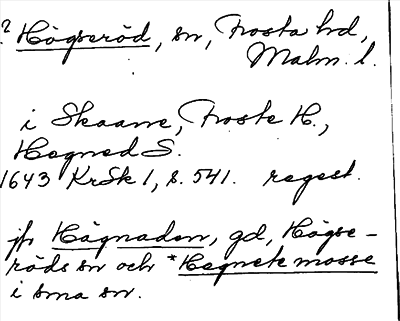 ? Högseröd, sn, Frosta hd,
Malm. l.
i Skaane, Froste H.,
Hegned S.
1643 KrSk 1, s. 541. regest.
jfr Hägnaden, gd, Högse-
röds sn och *Hegnetz mosse
i sma sn.